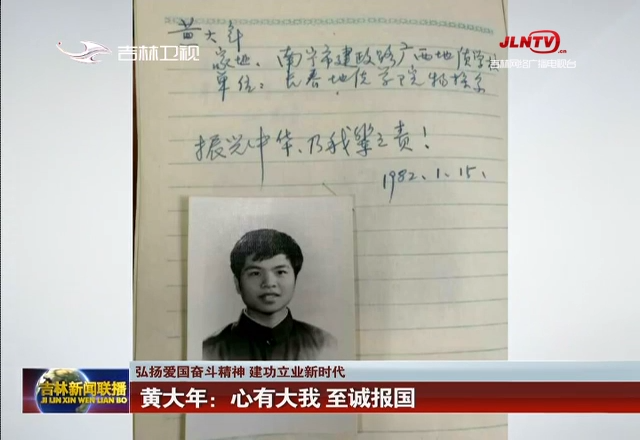 黄大年
吉林卫视
JLNTV.cn
吉林网络广播电视台
家地：南宁市建政路广西地质学校
单位：长春地质学院物探系
振兴中华、乃我辈之责！
1982.1.15.
弘扬爱国奋斗精神 建功立业新时代
吉林新闻联播
JI LIN XIN WEN LIAN BO
黄大年：心有大我 至诚报国